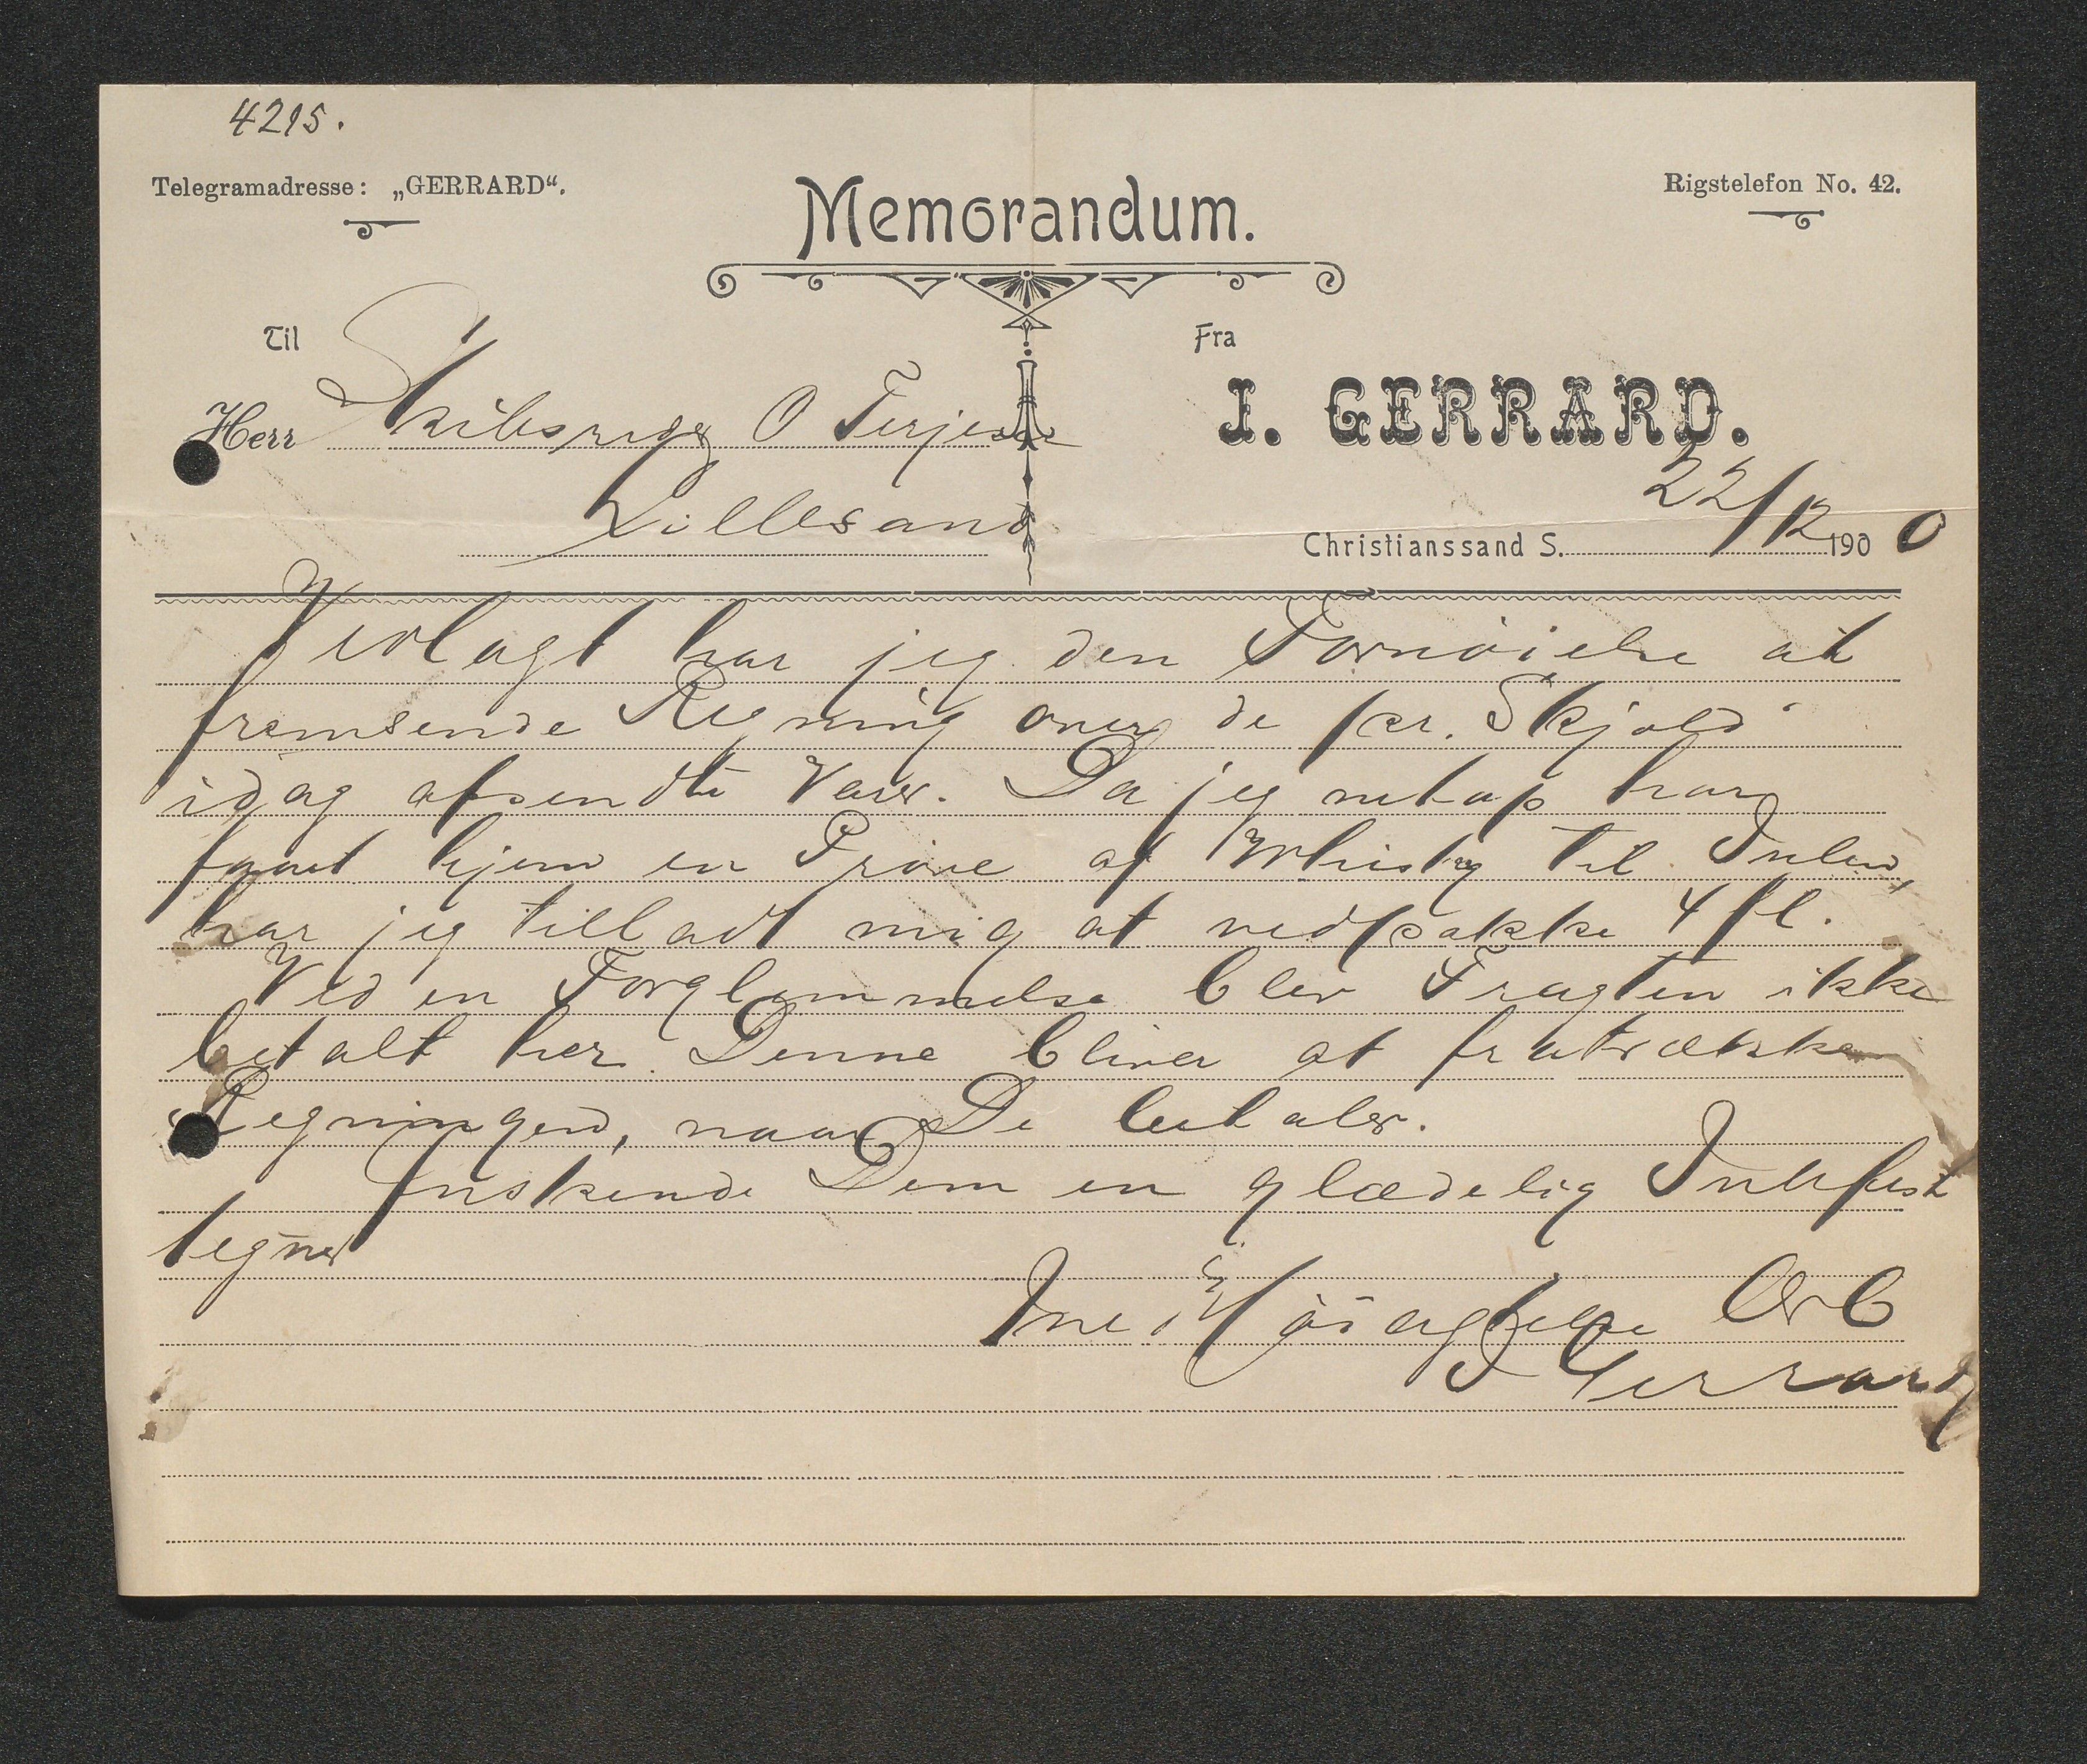 4215.
Telegramadresse: „GERRARD“.
Rigstelefon No. 42.
Memorandum.
Til
Fra
Herr Skibsreder O Terjesen
J. GERRARD.
Lillesand
Christianssand S. 22/12 1900
Vedlagt har jeg den Fornöielse at
fremsende Regning over de pr. Skjold"
idag afsendte Varer. Da jeg netop har
faaet hjem en Pröve af Whisky til Julen,
har jeg tilladt mig at nedpakke 4 fl.
Ved en Forglemmelse blev Fragten ikke
betalt her. Denne bliver at fratrække
Regningen, naar De betaler.
Önskende Dem en glædelig Julefest
tegner
med Höiagtelse Erb
J Gerrard